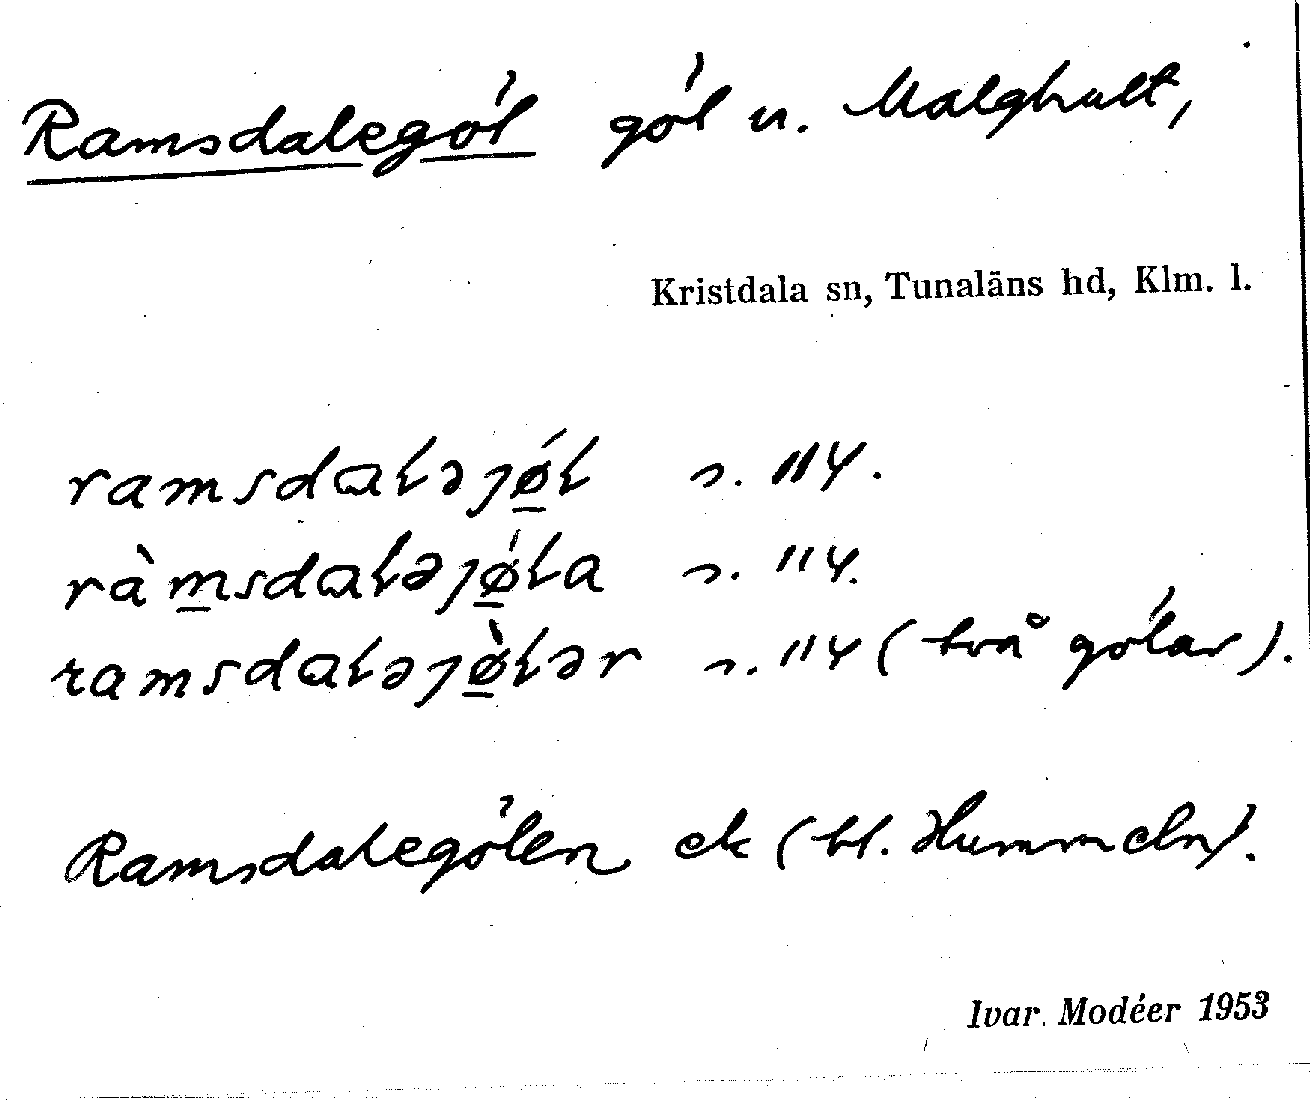 Ramsdalegöl göl u. Malghult,
Kristdala sn, Tunaläns hd, Klm. l.
ramsdaꞎəȷǿ̱ꞎ s. 114.
ràm̱sdaꞎəȷǿ̱ꞎa s. 114.
ramsdaꞎəȷø̱̀ꞎər s. 114 (två gölar).
Ramsdalegölen ek (bl. Hummeln).
Ivar Modéer 1953